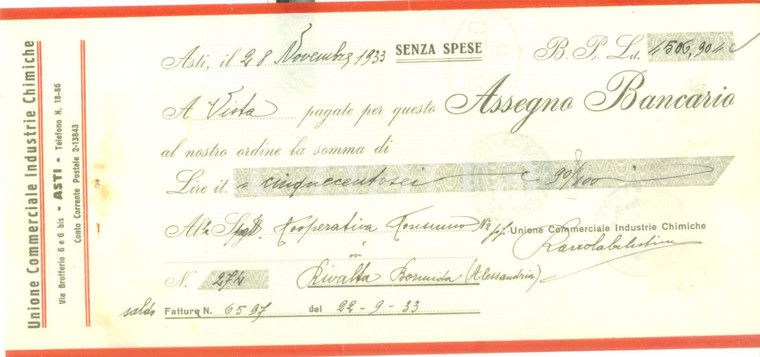 Unione Commerciale Industrie Chimiche
Via Brofferio 6 e 6 bis - ASTI - Telefono N. 18-86
Conto Corrente Postale 2-13843
Asti, il 28 Novembre 1933 SENZA SPESE B. P. Lit. 506,90
A Vista pagate per questo Assegno Bancario
al nostro ordine la somma di
Lire it. = cinquecentosei 90/100
Alla Cooperativa Consumo
p. Unione Commerciale Industrie Chimiche
in
N. 274 Rivalta Bormida (Alessandria)
saldo Fattura N. 6597 del 22-9-33